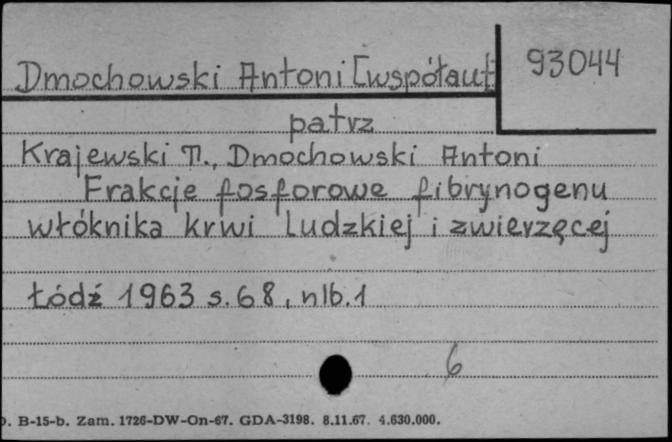 93044
Dmochowski Antoni [współaut
patrz
Krajewski T., Dmochowski Antoni
Frakcje fosforowe fibrynogenu
włóknika krwi ludzkiej i zwierzęcej
Łódź 1963 s. 68, nlb. 1
6
D. B-15-b. Zam. 1726-DW-On-67. GDA-3198. 8.11.67. 4.630.000.